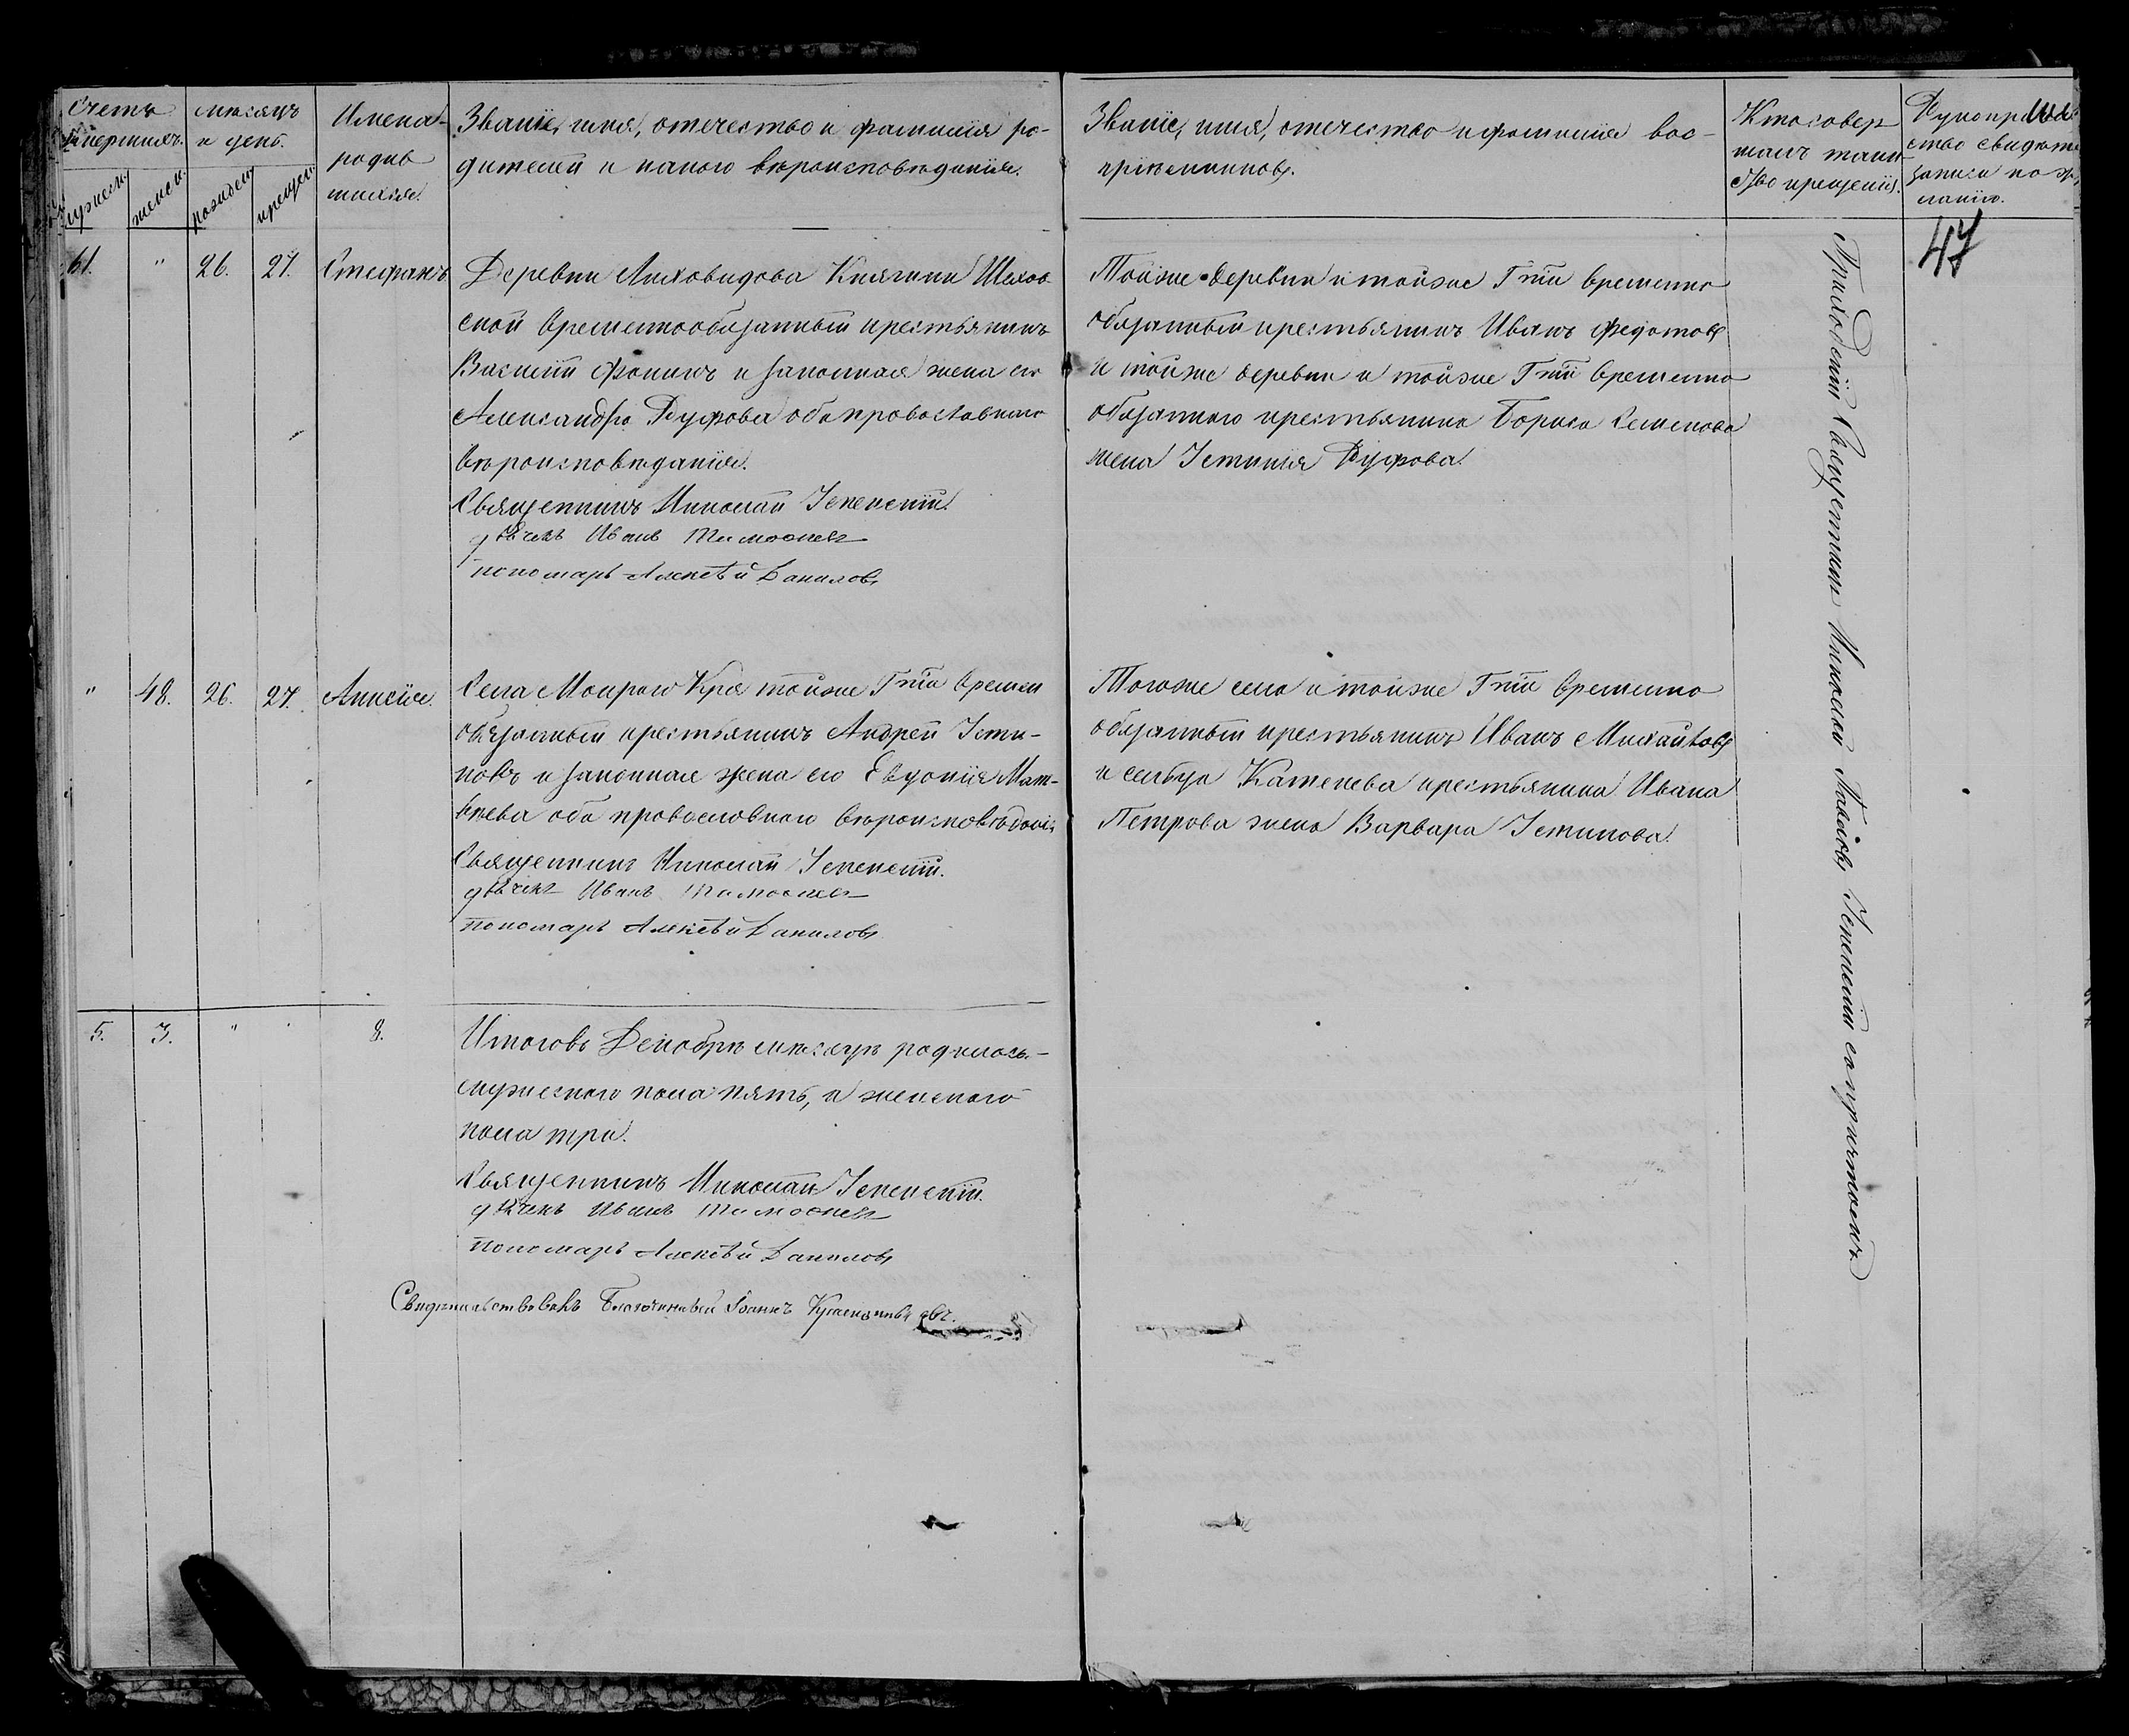 Счетъ
мѣсяцъ
и день.
мужеск.
женск.
рожден.
крещен.
Имена
родив
шихся.
Званіе, имя, отечество и фамилія ро-
дителей и какого вѣроисповѣданія.
Званіе, имя, отечество и фамилія вос-
пріемниковъ.
Кто совер
шалъ таин
ство крещенія.
Рукоприклад
ство свидѣте
записи по же
ланію.
47
61. " 26. 27. Стефанъ
Деревни Лиховидова Княгини Шахов
ской временнообязанный крестьянинъ
Василій Фокинъ и законная жена его
Александра Руфова оба православнаго
вѣроисповѣданія.
Священникъ Николай Успенскій.
дьячекъ Иванъ Тимофеевъ
пономарь Алексѣй Даниловъ
Тойже деревни и тойже Гжи временно
обязанный крестьянинъ Иванъ Федотовъ
и тойже деревни и тойже Гжи временно
обязаннаго крестьянина Бориса Семенова
жена Устинія Руфова.
" 48. 26. 27. Анисія.
Села Мокраго тойже Гжи времен
обязанный крестьянинъ Андрей Усти-
новъ и законная жена его Евдокія Мат-
вѣева оба православнаго вѣроисповѣданія
Священникъ Николай Успенскій.
дьячекъ Иванъ Тимофеевъ
пономарь Алексѣй Даниловъ
Тогоже села и тойже Гжи временно
обязанный крестьянинъ Иванъ Михайловъ
и сельца Каменева крестьянина Ивана
Петрова жена Варвара Устинова.
5. 3. " " 8.
Итого въ Декабрѣ мѣсяцѣ родилось-
мужескаго пола пять, и женскаго
пола три.
Священникъ Николай Успенскій.
дьячекъ Иванъ Тимофеевъ
пономарь Алексѣй Даниловъ
Свидѣтельствовалъ Благочинный Іоаннъ
Приходскій Священникъ Николай Павловъ Успенскій съ причтомъ.